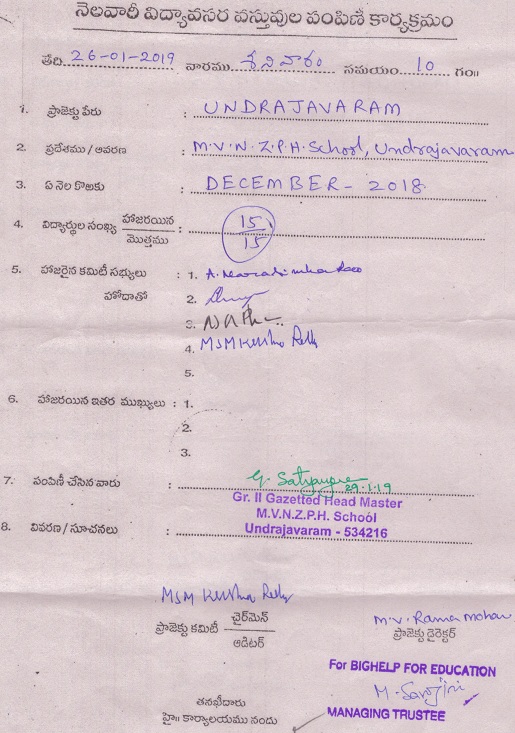 నెలవారీ విద్యావసర వస్తువుల పంపిణీ కార్యక్రమం
తేది 26-01-2019 వారము శనివారం సమయం 10 గం॥
1. ప్రాజెక్టు పేరు : UNDRAJAVARAM
2. ప్రదేశము / ఆవరణ : M.V.N.Z.P.H. School, Undrajavaram
3. ఏ నెల కొఱకు : DECEMBER - 2018
4. విద్యార్థుల సంఖ్య హాజరయిన : 15
మొత్తము 15
5. హాజరైన కమిటీ సభ్యులు : 1. A. Narasimha Rao
హోదాతో 2.
3.
4. MSM Krishna Reddy
5.
6. హాజరయిన ఇతర ముఖ్యులు : 1.
2.
3.
7. పంపిణీ చేసిన వారు : G. Satya
29.1.19
Gr. II Gazetted Head Master
M.V.N.Z.P.H. School
8. వివరణ / సూచనలు : Undrajavaram - 534216
MSM Krishna Reddy
ప్రాజెక్టు కమిటీ ఛైర్మెన్
ఆడిటర్
M.V. Rama Mohan
ప్రాజెక్టు డైరెక్టర్
For BIGHELP FOR EDUCATION
M. Sarojini
MANAGING TRUSTEE
తనఖీదారు
హై॥ కార్యాలయము నందు